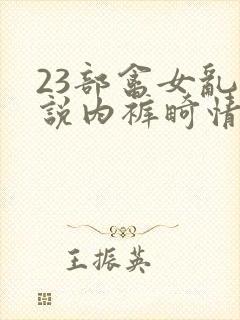 23部富女乱
説内裤畸情
王振英